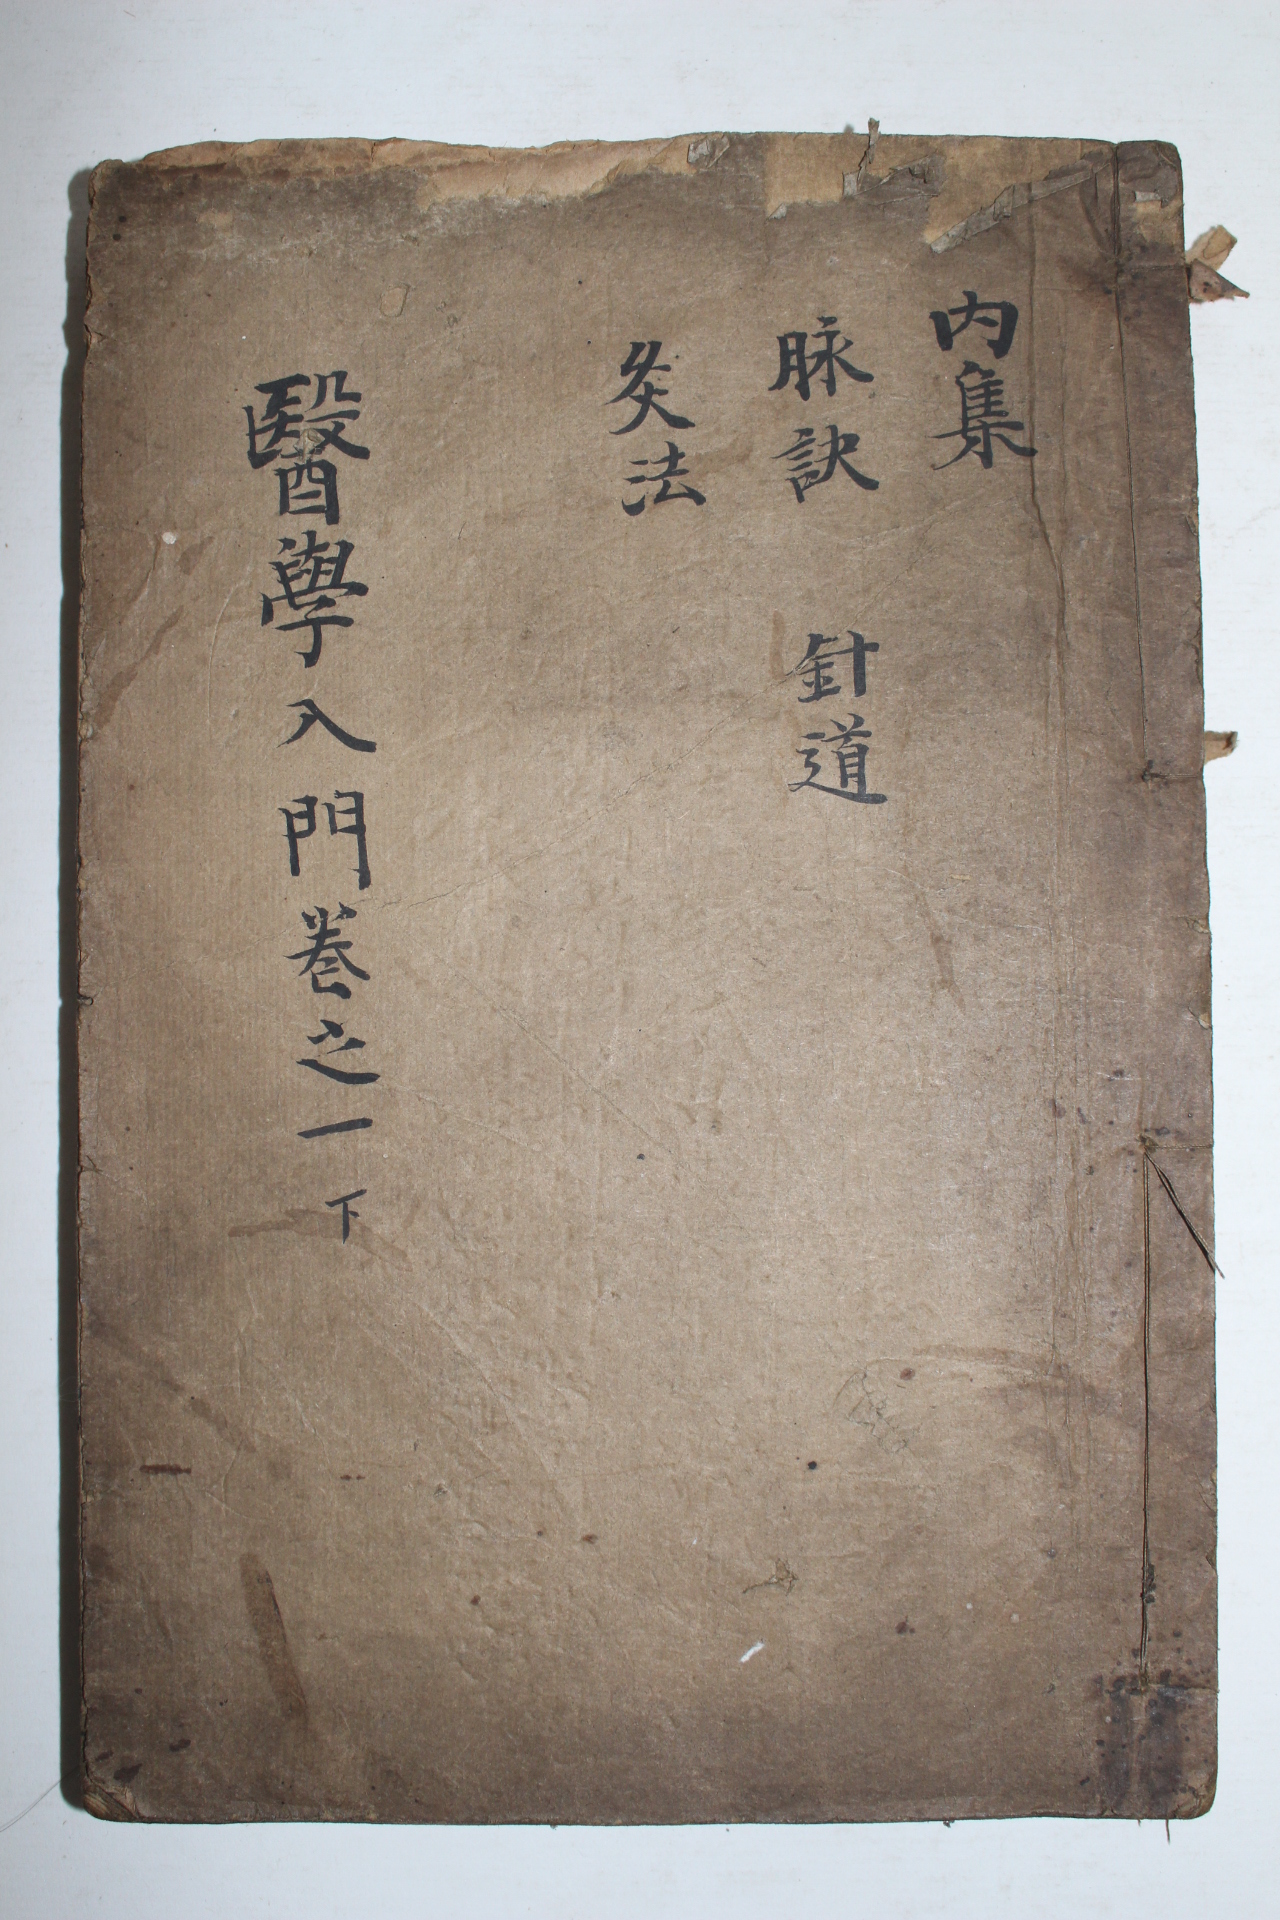 內集
脉訣 針道
灸法
醫學入門卷之一 下